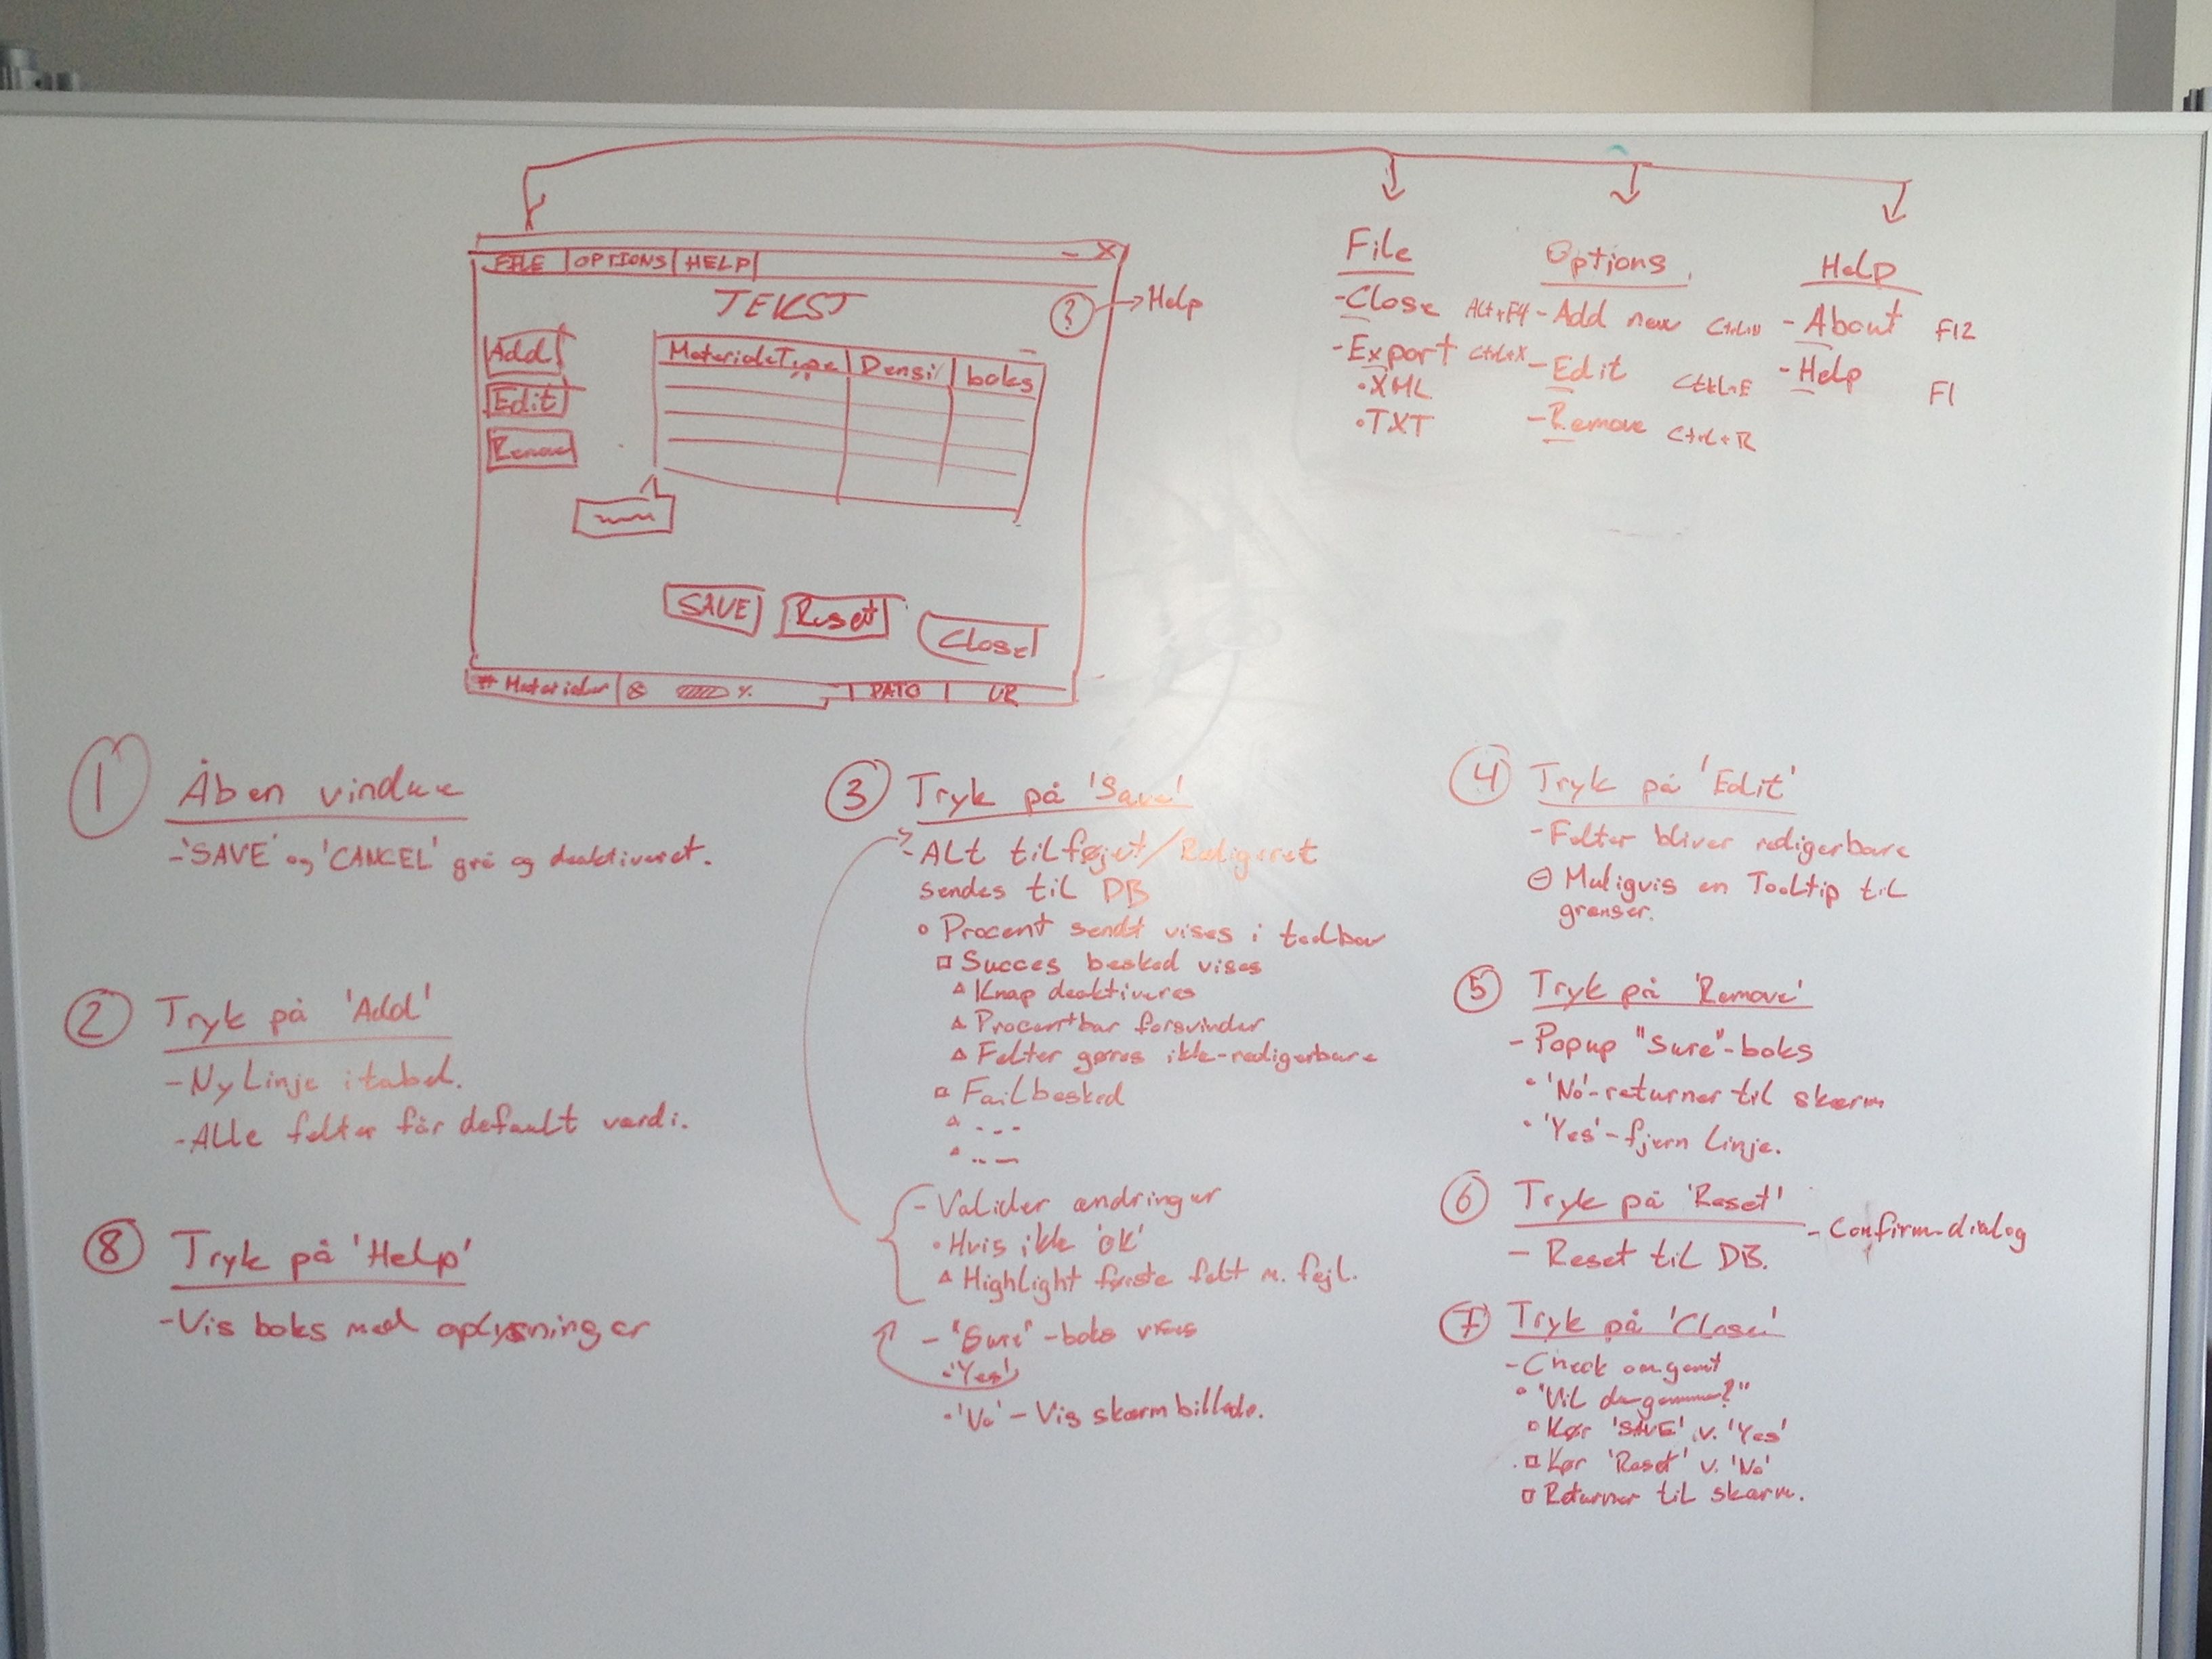 FILE | OPTIONS | HELP
- X
TEKST
? → Help
Add
Edit
Remove
MaterialeType | Densi | boks
SAVE
Reset
Close
# Materialer
%
DATO
UR
File
- Close Alt+F4
- Export Ctrl+X
• XML
• TXT
Options
- Add new Ctrl+N
- Edit Ctrl+E
- Remove Ctrl+R
Help
- About F12
- Help F1
1 Åben vindue
- 'SAVE' og 'CANCEL' grå og deaktiveret.
2 Tryk på 'Add'
- Ny Linje i tabel.
- Alle felter får default værdi.
8 Tryk på 'Help'
- Vis boks med oplysninger
3 Tryk på 'Save'
- Alt tilføjet/Redigeret
sendes til DB
Procent sendt vises i toolbar
Succes besked vises
Knap deaktiveres
Procentbar forsvinder
Felter gøres ikke-redigerbare
Fail besked
---
---
- Valider ændringer
• Hvis ikke 'OK'
Highlight første felt m. fejl.
- "Sure"-boks vises
• 'Yes'
• 'No' - Vis skærmbillede.
4 Tryk på 'Edit'
- Felter bliver redigerbare
Muligvis en Tooltip til
grænser.
5 Tryk på 'Remove'
- Popup "Sure"-boks
• 'No' - returner til skærm
• 'Yes' - fjern Linje.
6 Tryk på 'Reset'
- Confirm-dialog
- Reset til DB.
7 Tryk på 'Close'
- Check om gemt
"Vil du gemme?"
Kør 'SAVE' v. 'Yes'
Kør 'Reset' v. 'No'
Returner til skærm.